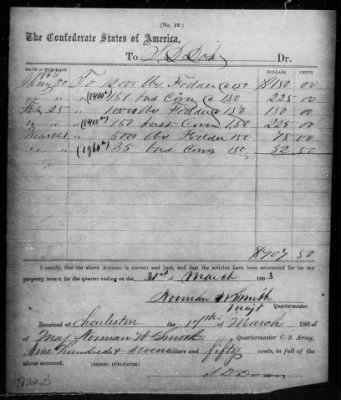 (No. 12)
The Confederate States of America,
To S. D. Doar Dr.
DATE OF PURCHASE. DOLLARS CENTS
1863
To lbs Fodder @ 150 $150 00
150 bus Corn @ 150 225 00
Feby 25 lbs Fodder @ 150 150 00
" " 150 bus Corn 150 225 00
March " lbs Fodder 150 75 00
" " 35 bus Corn 150 52 50
$707 50
I certify, that the above Account is correct and just, and that the articles have been accounted for on my
property return for the quarter ending at the 31st of March 1863
Norman W Smith
Majr Quartermaster.
Received at Charleston the 17th of March 186
Maj Norman W Smith Quartermaster C. S. Army,
hundred & seven dollars and fifty cents, in full of the
above account.
(SIGNED DUPLICATES.)
S. D. Doar